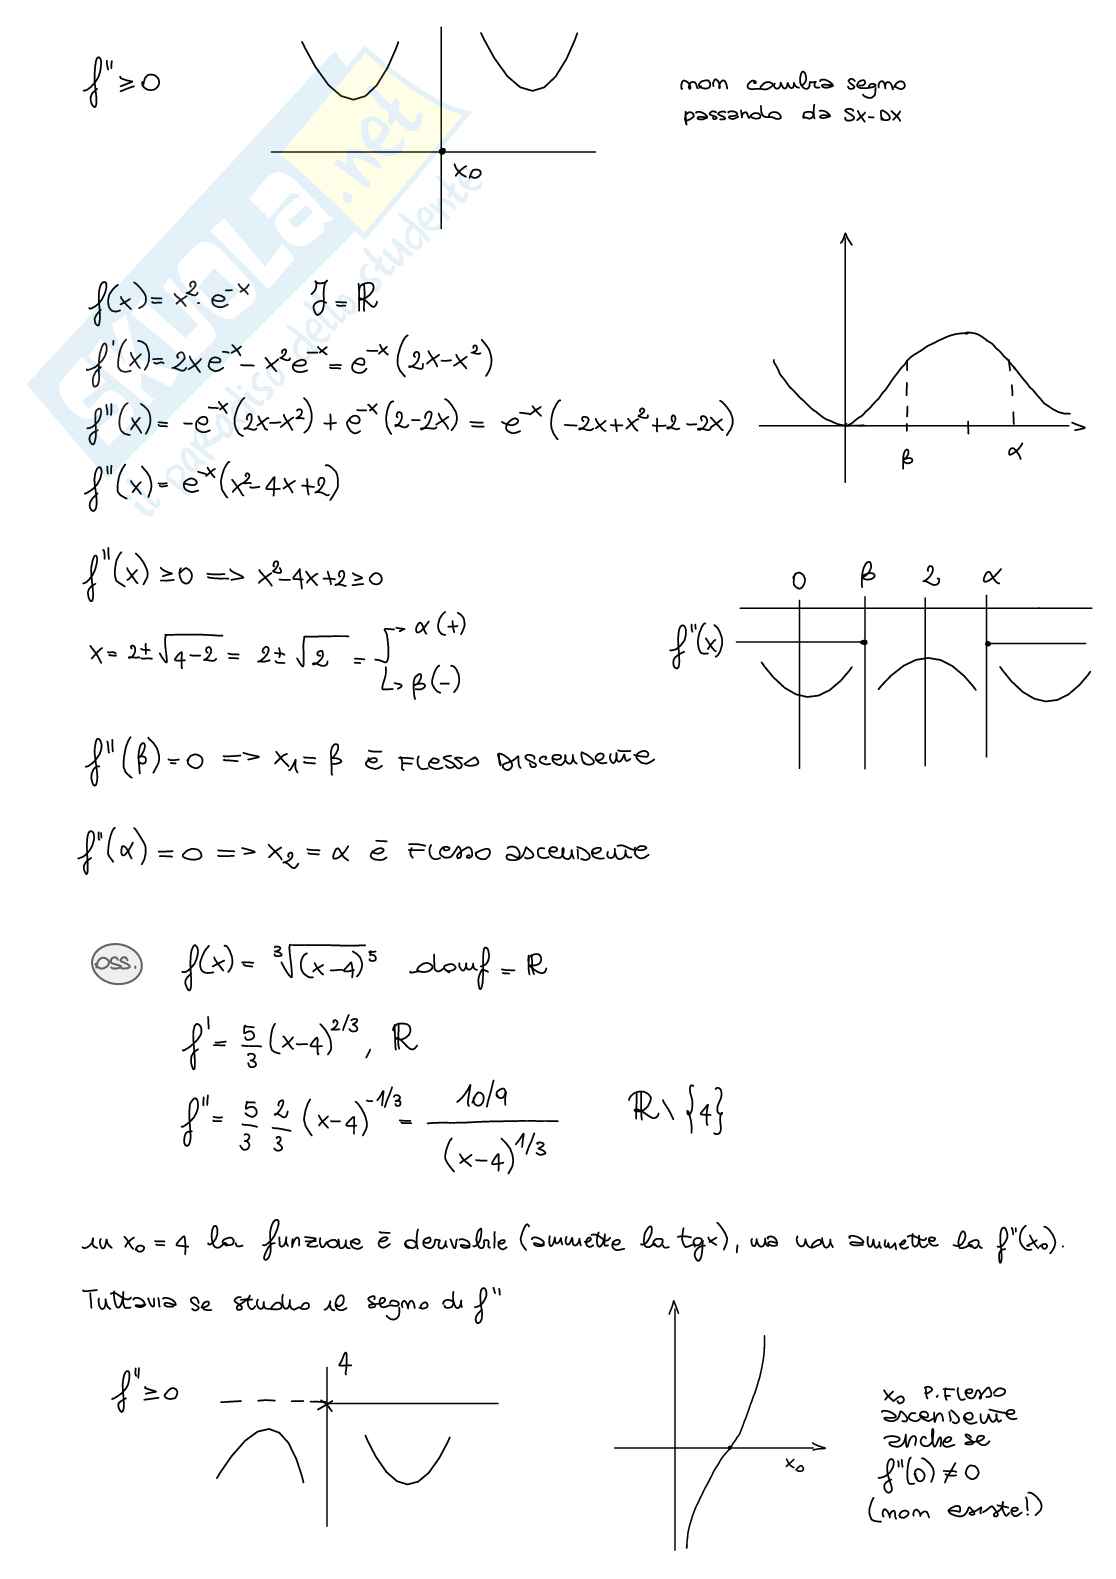 f'' ≥ 0
x₀
non cambia segno
passando da SX-DX
SKUOLA.net
il paradiso dello studente
f(x) = x²·e⁻ˣ  𝒥 = ℝ
f'(x) = 2x e⁻ˣ - x²e⁻ˣ = e⁻ˣ(2x-x²)
f''(x) = -e⁻ˣ(2x-x²) + e⁻ˣ(2-2x) = e⁻ˣ(-2x+x²+2-2x)
f''(x) = e⁻ˣ(x²-4x+2)
β α
f''(x) ≥ 0 => x²-4x+2 ≥ 0
x = 2±√(4-2) = 2±√2 = → α(+)
↳ β(-)
0 β 2 α
f''(x)
f''(β) = 0 => x₁ = β è FLESSO DISCENDENTE
f''(α) = 0 => x₂ = α è FLESSO ASCENDENTE
OSS. f(x) = ³√(x-4)⁵ domf = ℝ
f' = 5/3 (x-4)^2/3, ℝ
f'' = 5/3 2/3 (x-4)^-1/3 = 10/9 / (x-4)^1/3  ℝ\{4}
in x₀ = 4 la funzione è derivabile (ammette la tgx), ma non ammette la f''(x₀).
Tuttavia se studio il segno di f''
f'' ≥ 0
4
x₀
x₀ P.FLESSO
ascendente
anche se
f''(0) ≠ 0
(non esiste!)